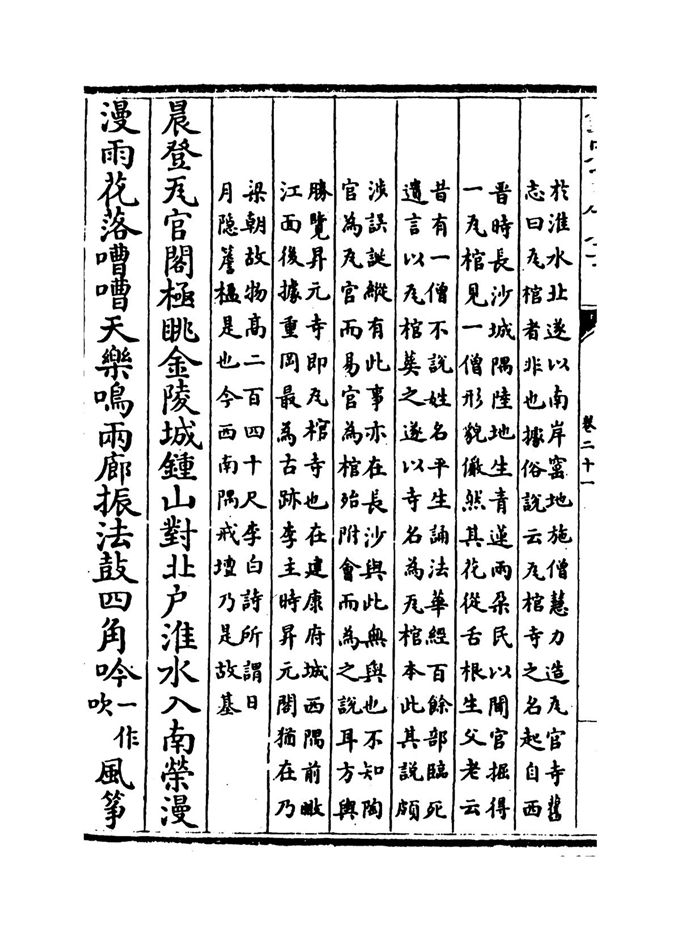 卷二十一
於淮水北遂以南岸窰地施僧慧力造瓦官寺舊
志曰瓦棺者非也據俗說云瓦棺寺之名起自西
晉時長沙城隅陸地生青蓮兩朶民以聞官掘得
一瓦棺見一僧形貌儼然其花從舌根生父老云
昔有一僧不說姓名平生誦法華經百餘部臨死
遺言以瓦棺葬之遂以寺名為瓦棺本此其說頗
涉誤誕縱有此事亦在長沙與此無與也不知陶
官為瓦官而易官為棺殆附會而為之說耳方輿
勝覽昇元寺即瓦棺寺也在建康府城西隅前瞰
江面後據重岡最為古跡李主時昇元閣猶在乃
梁朝故物髙二百四十尺李白詩所謂日
月隐簷楹是也今西南隅戒壇乃是故基
晨登瓦官閣極眺金陵城鍾山對北户淮水入南榮漫
漫雨花落嘈嘈天樂鳴兩廊振法鼓四角吟一作吹風筝